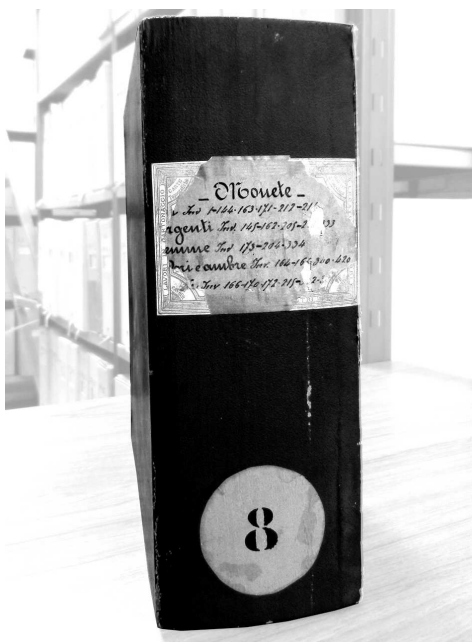 - Monete -
Inv 1-144-163-171-212-21
rgenti Inv. 145-162-205-2 333
emme Inv 173-204-334
bri e ambre Inv. 164-165-340-420
Inv 166-170-172-215- 2-
8